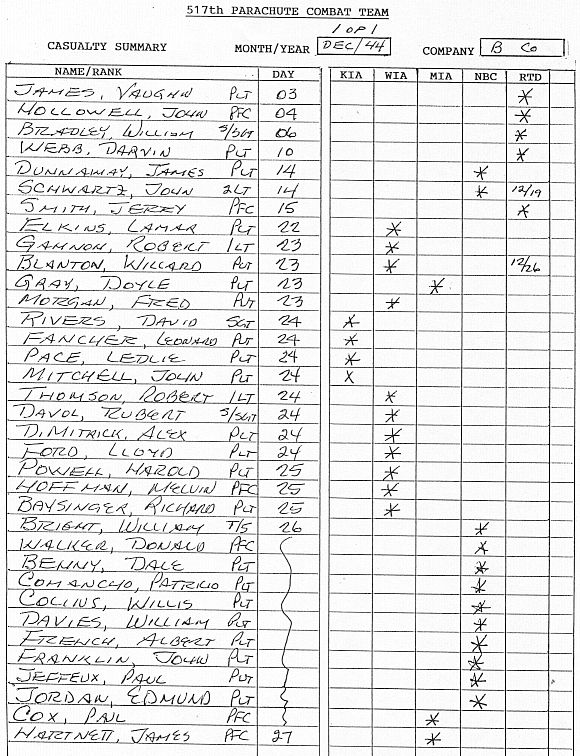 517th PARACHUTE COMBAT TEAM
1 OF 1
CASUALTY SUMMARY MONTH/YEAR DEC/44 COMPANY B Co
NAME/RANK DAY KIA WIA MIA NBC RTD
JAMES, VAUGHN PLT 03 *
HOLLOWELL, JOHN PFC 04 *
BRADLEY, WILLIAM S/SGT 06 *
WEBB, DARVIN PLT 10 *
DUNNAWAY, JAMES PLT 14 *
SCHWARTZ, JOHN 2LT 14 * 12/19
SMITH, JERRY PFC 15 *
ELKINS, LAMAR PLT 22 *
GAMNON, ROBERT 1LT 23 *
BLANTON, WILLARD PLT 23 * 12/26
GRAY, DOYLE PLT 23 *
MORGAN, FRED PLT 23 *
RIVERS, DAVID SGT 24 *
FANCHER, LEONARD PLT 24 *
PACE, LEDLIE PLT 24 *
MITCHELL, JOHN PLT 24 X
THOMSON, ROBERT 1LT 24 *
DAVOL, RUBERT S/SGT 24 *
DIMITRICK, ALEX PLT 24 *
FORD, LLOYD PLT 24 *
POWELL, HAROLD PLT 25 *
HOFFMAN, MELVIN PFC 25 *
BAYSINGER, RICHARD PLT 25 *
BRIGHT, WILLIAM T/5 26 *
WALKER, DONALD PFC *
BENNY, DALE PLT *
COMANCHO, PATRICIO PLT *
COLLINS, WILLIS PLT *
DAVIES, WILLIAM PLT *
FRENCH, ALBERT PLT *
FRANKLIN, JOHN PLT *
JEFFEUX, PAUL PLT *
JORDAN, EDMUND PLT *
COX, PAUL PFC *
HARTNETT, JAMES PFC 27 *